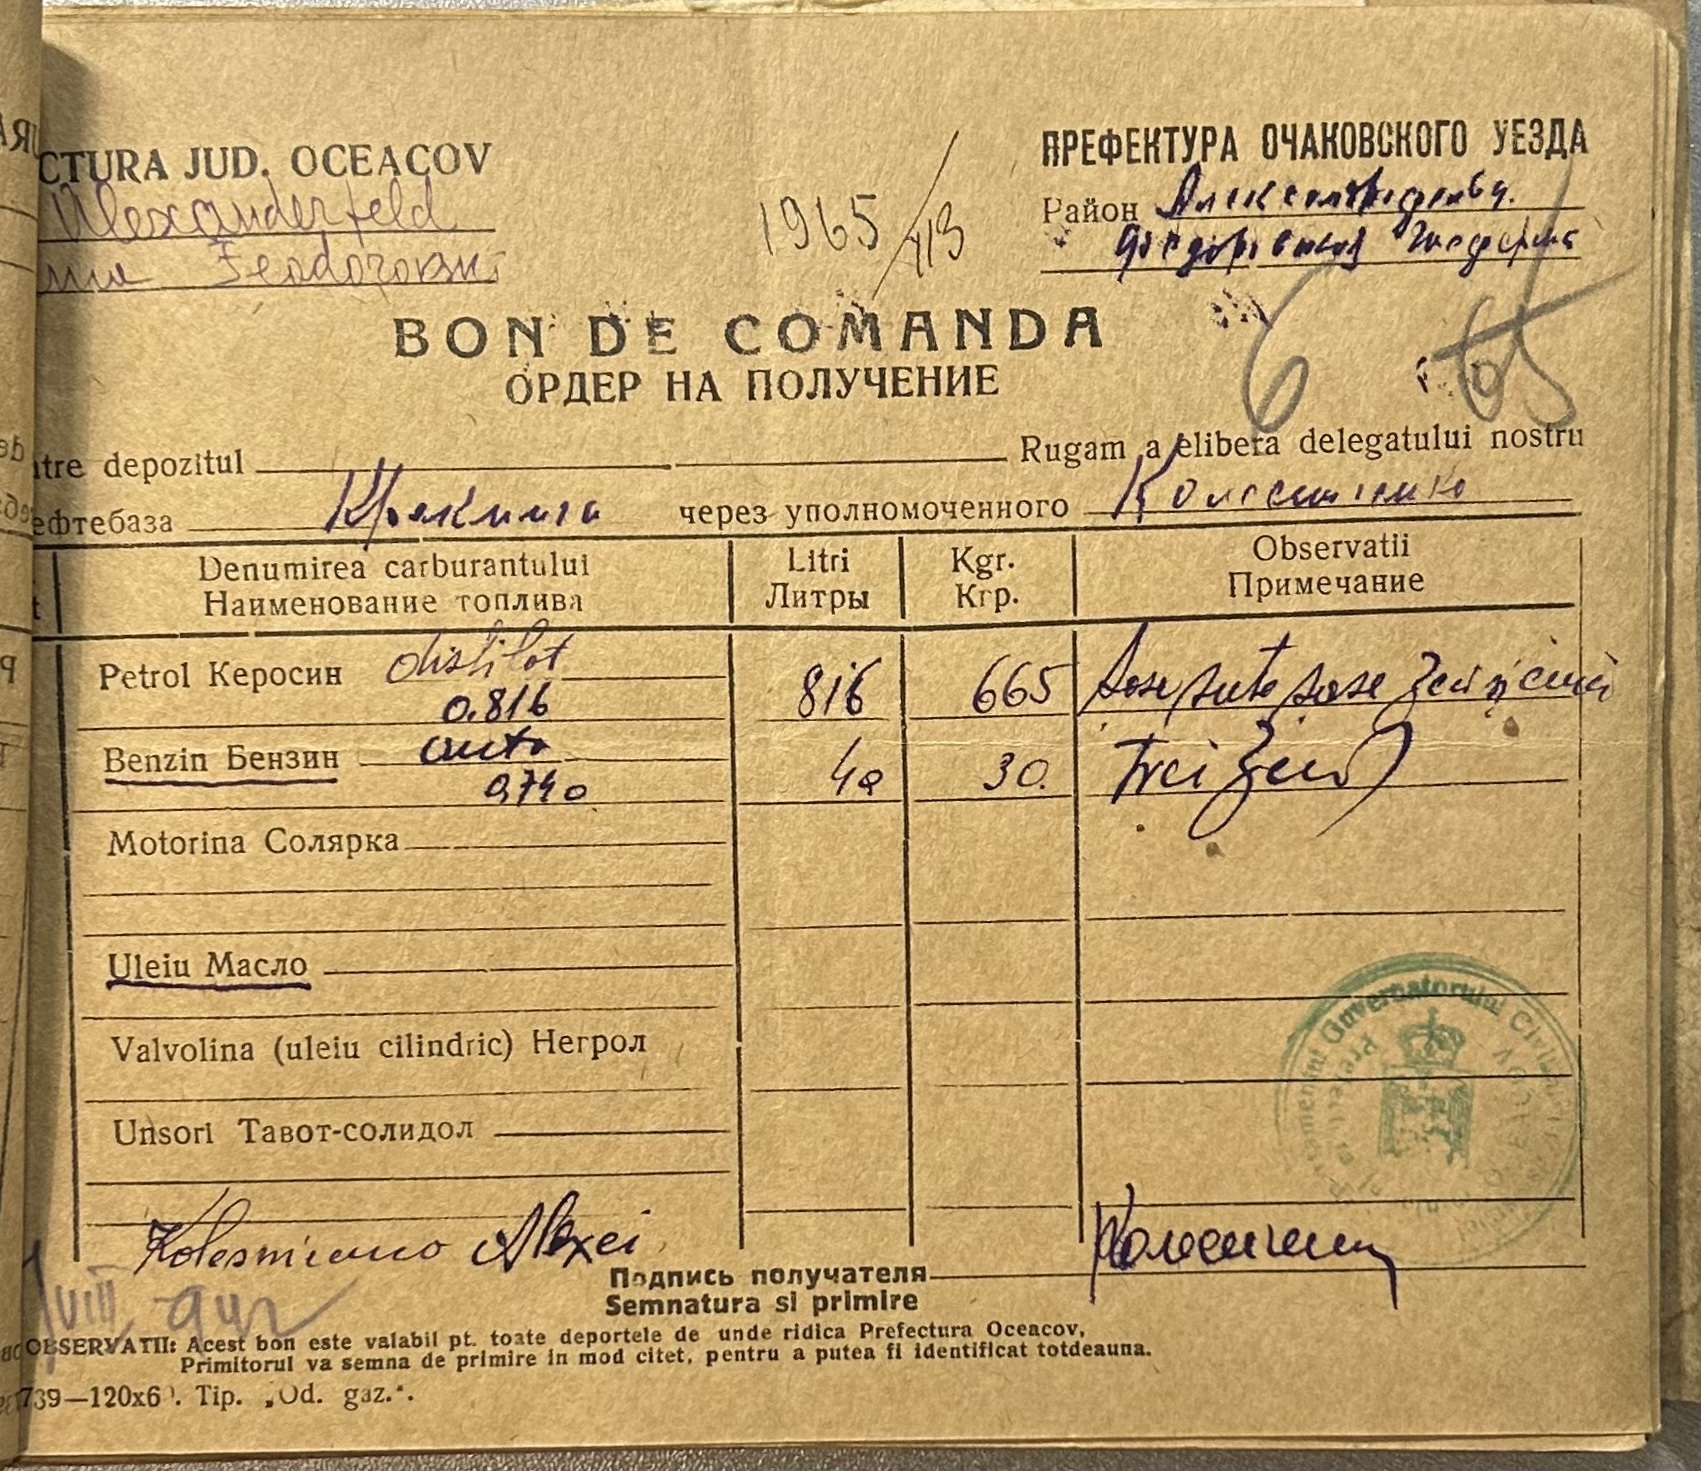 CTURA JUD. OCEACOV
ПРЕФЕКТУРА ОЧАКОВСКОГО УЕЗДА
Alexanderfeld
1965/
Район
Feodorovka
BON DE COMANDA
ОРДЕР НА ПОЛУЧЕНИЕ
6
65
tre depozitul
Rugam a elibera delegatului nostru
ефтебаза Крекинга через уполномоченного
Denumirea carburantului
Litri
Kgr.
Observatii
Наименование топлива
Литры
Кгр.
Примечание
Petrol Керосин distilat 816 665 sase sute sase zeci si cinci
0.816
Benzin Бензин auto 40 30. trei zeci
0.740
Motorina Солярка
Uleiu Масло
Valvolina (uleiu cilindric) Негрол
Unsori Тавот-солидол
Guvernatorului Civil
Kolesnicenco Alexei
Подпись получателя
Semnatura si primire
OBSERVATII: Acest bon este valabil pt. toate deportele de unde ridica Prefectura Oceacov,
Primitorul va semna de primire in mod citet, pentru a putea fi identificat totdeauna.
739—120x6 . Tip. „Od. gaz.".